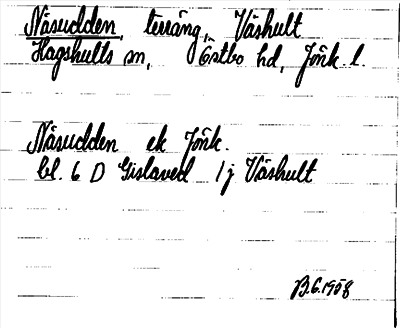 Näsudden, terräng, Väshult
Hagshults sn, Östbo hd, Jönk. l.
Näsudden ek Jönk.
bl. 6 D Gislaved 1j Väshult
B.G. 1958